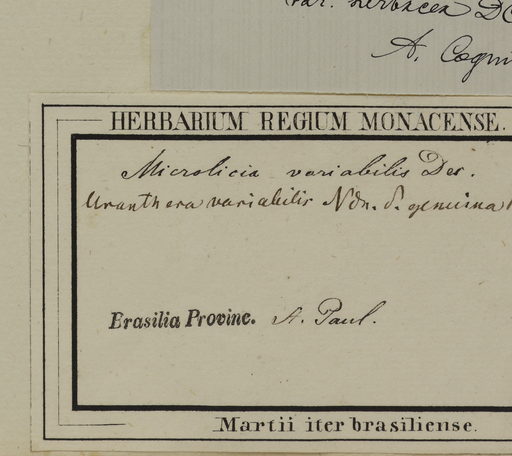 var. herbacea DC
A. Cogni
HERBARIUM REGIUM MONACENSE.
Microlicia variabilis Des.
Uranthera variabilis Ndn. δ. genuina
Brasilia Provinc. S. Paul.
Martii iter brasiliense.